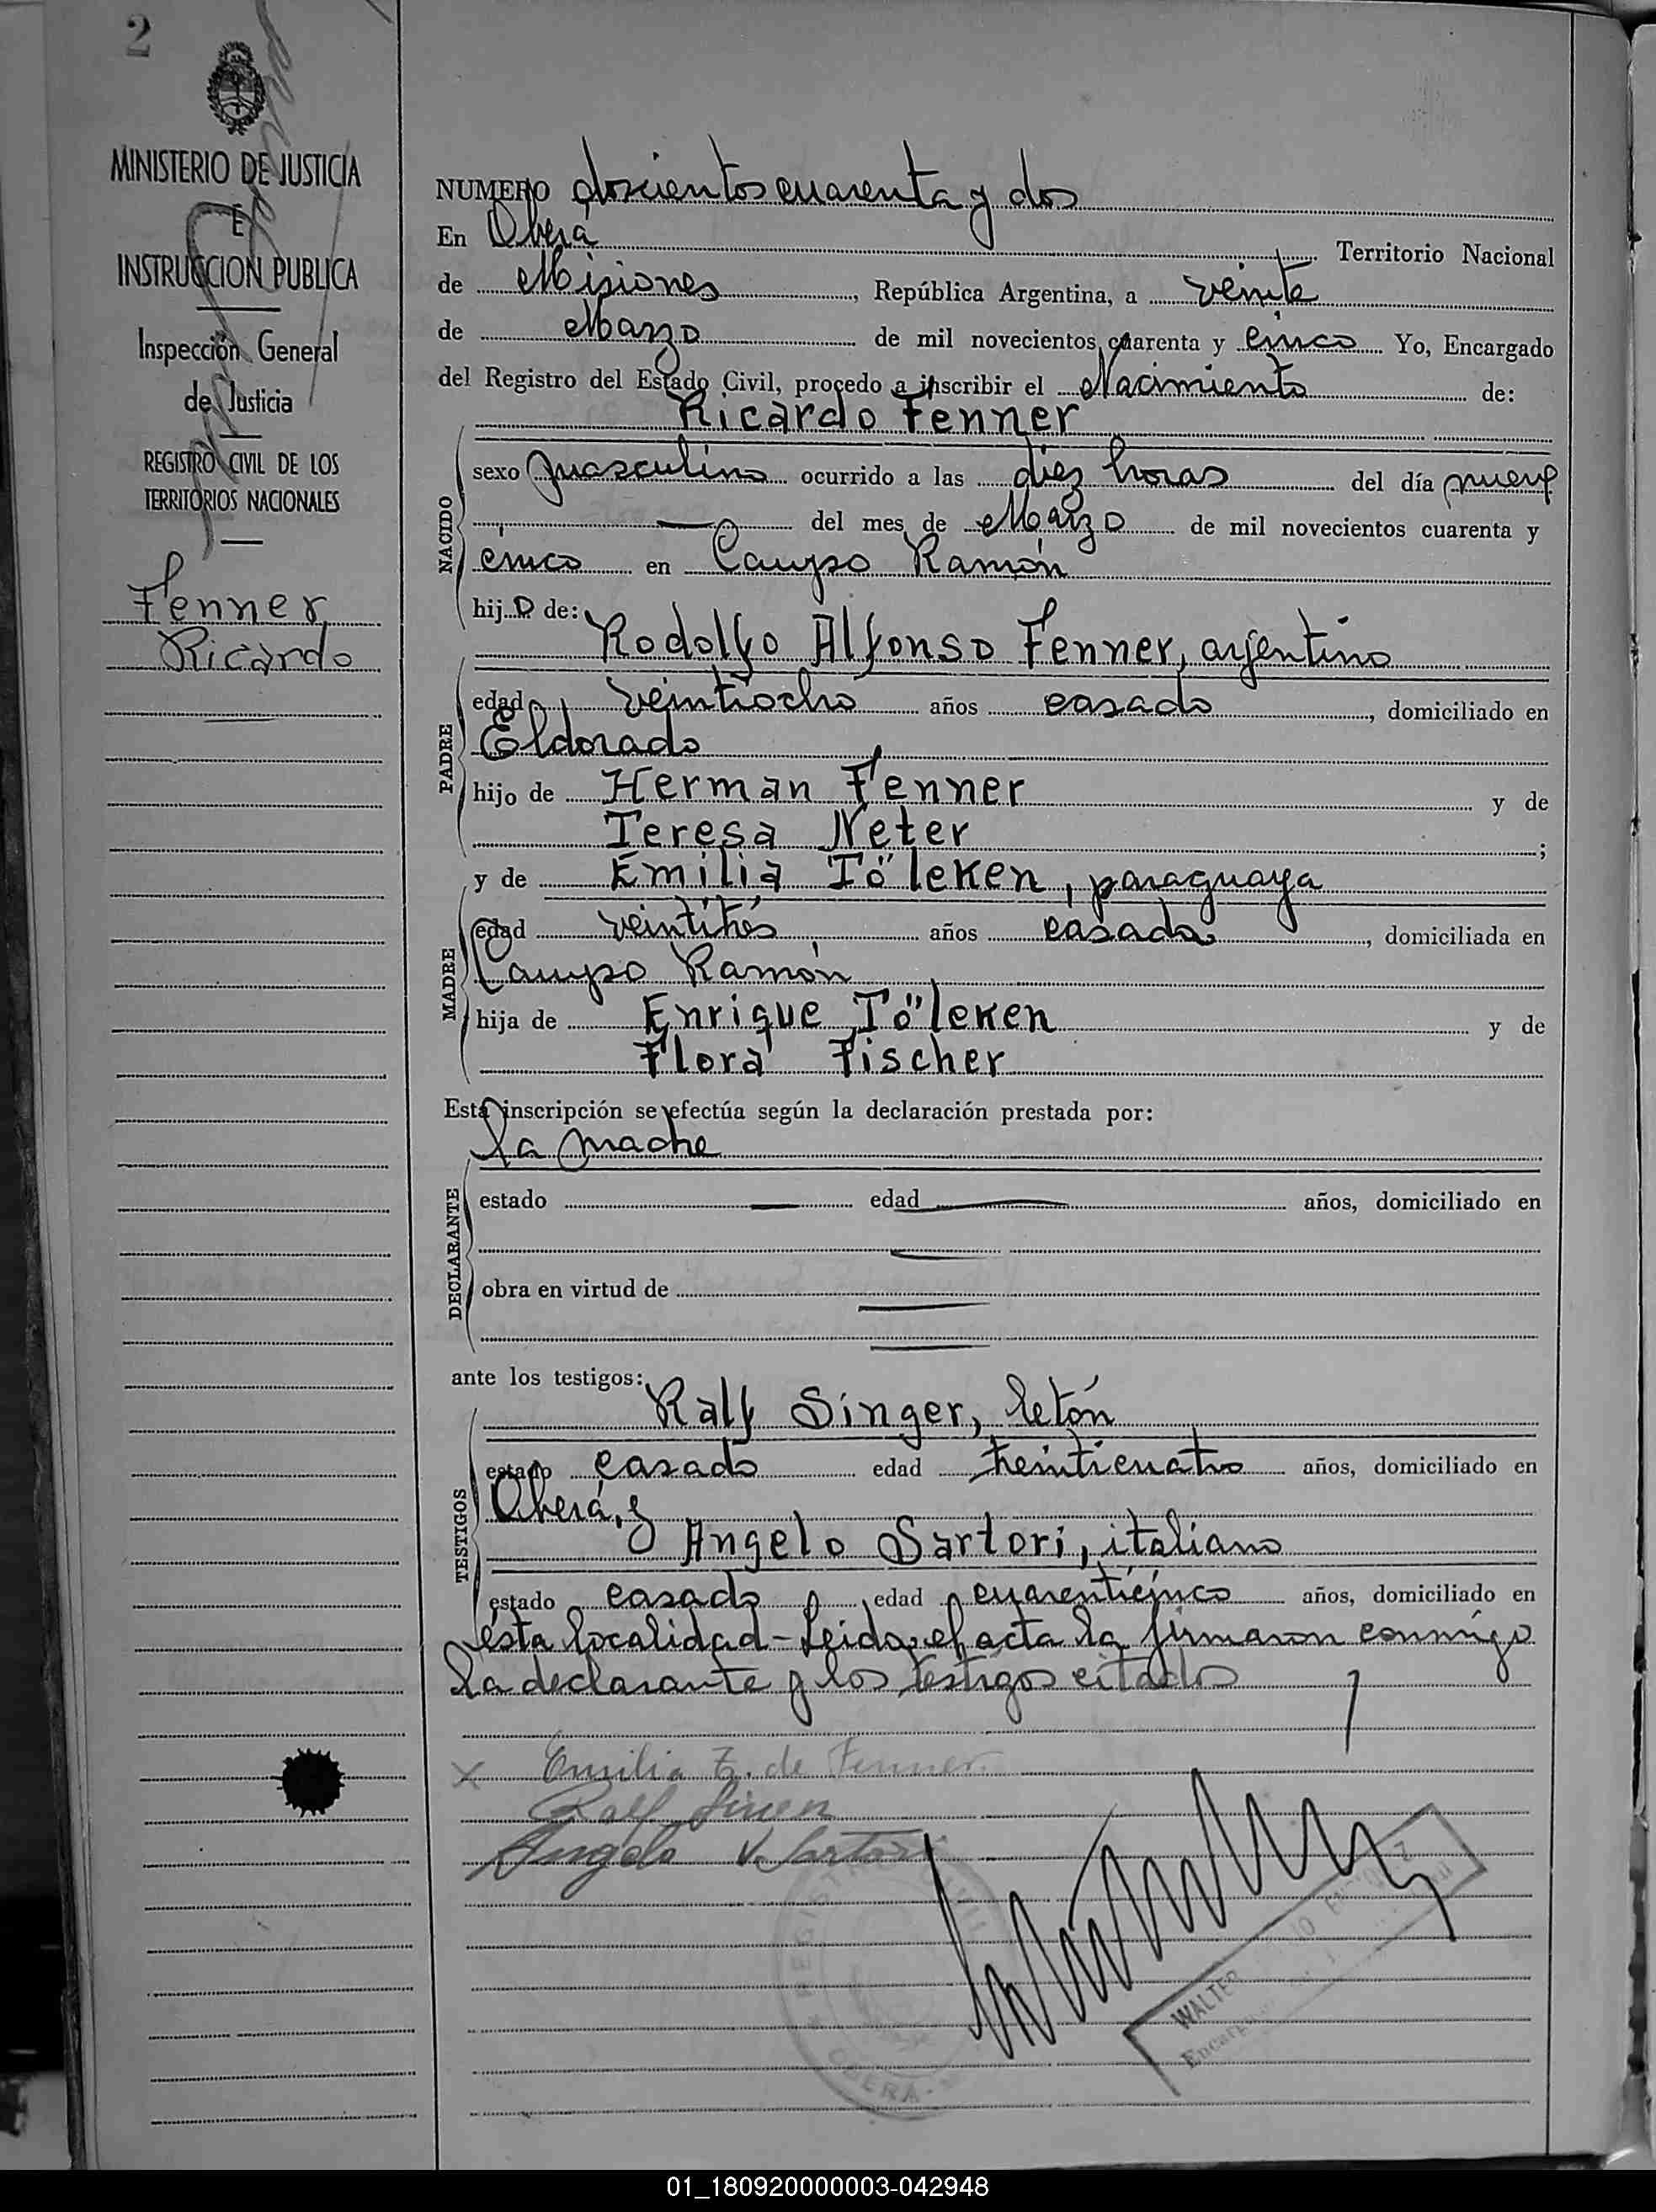 2
MINISTERIO DE JUSTICIA
E
INSTRUCCION PUBLICA
Inspección General
de Justicia
REGISTRO CIVIL DE LOS
TERRITORIOS NACIONALES
Fenner
Ricardo
NUMERO doscientos cuarenta y dos
En Oberá Territorio Nacional
de Misiones, República Argentina, a veinte
de Marzo de mil novecientos cuarenta y cinco Yo, Encargado
del Registro del Estado Civil, procedo a inscribir el Nacimiento de:
Ricardo Fenner
NACIDO
sexo masculino ocurrido a las diez horas del día nueve
del mes de Marzo de mil novecientos cuarenta y
cinco en Campo Ramón
hijo de:
Rodolfo Alfonso Fenner, argentino
PADRE
edad veintiocho años casado, domiciliado en
Eldorado
hijo de Herman Fenner y de
Teresa Neter;
y de Emilia Töleken, paraguaya
MADRE
edad veintitrés años casada, domiciliada en
Campo Ramón
hija de Enrique Töleken y de
Flora Fischer
Esta inscripción se efectúa según la declaración prestada por:
la madre
DECLARANTE
estado edad años, domiciliado en
obra en virtud de
ante los testigos:
Ralf Singer, letón
TESTIGOS
estado casado edad treinticuatro años, domiciliado en
Oberá, y
Angelo Sartori, italiano
estado casado edad cuarenticinco años, domiciliado en
ésta localidad - Leida el acta la firmaron conmigo
la declarante y los testigos citados
x Emilia T. de Fenner
Ralf
Angelo V. Sartori
REGISTRO
OBERÁ
WALTER
Encargado
01_180920000003-042948